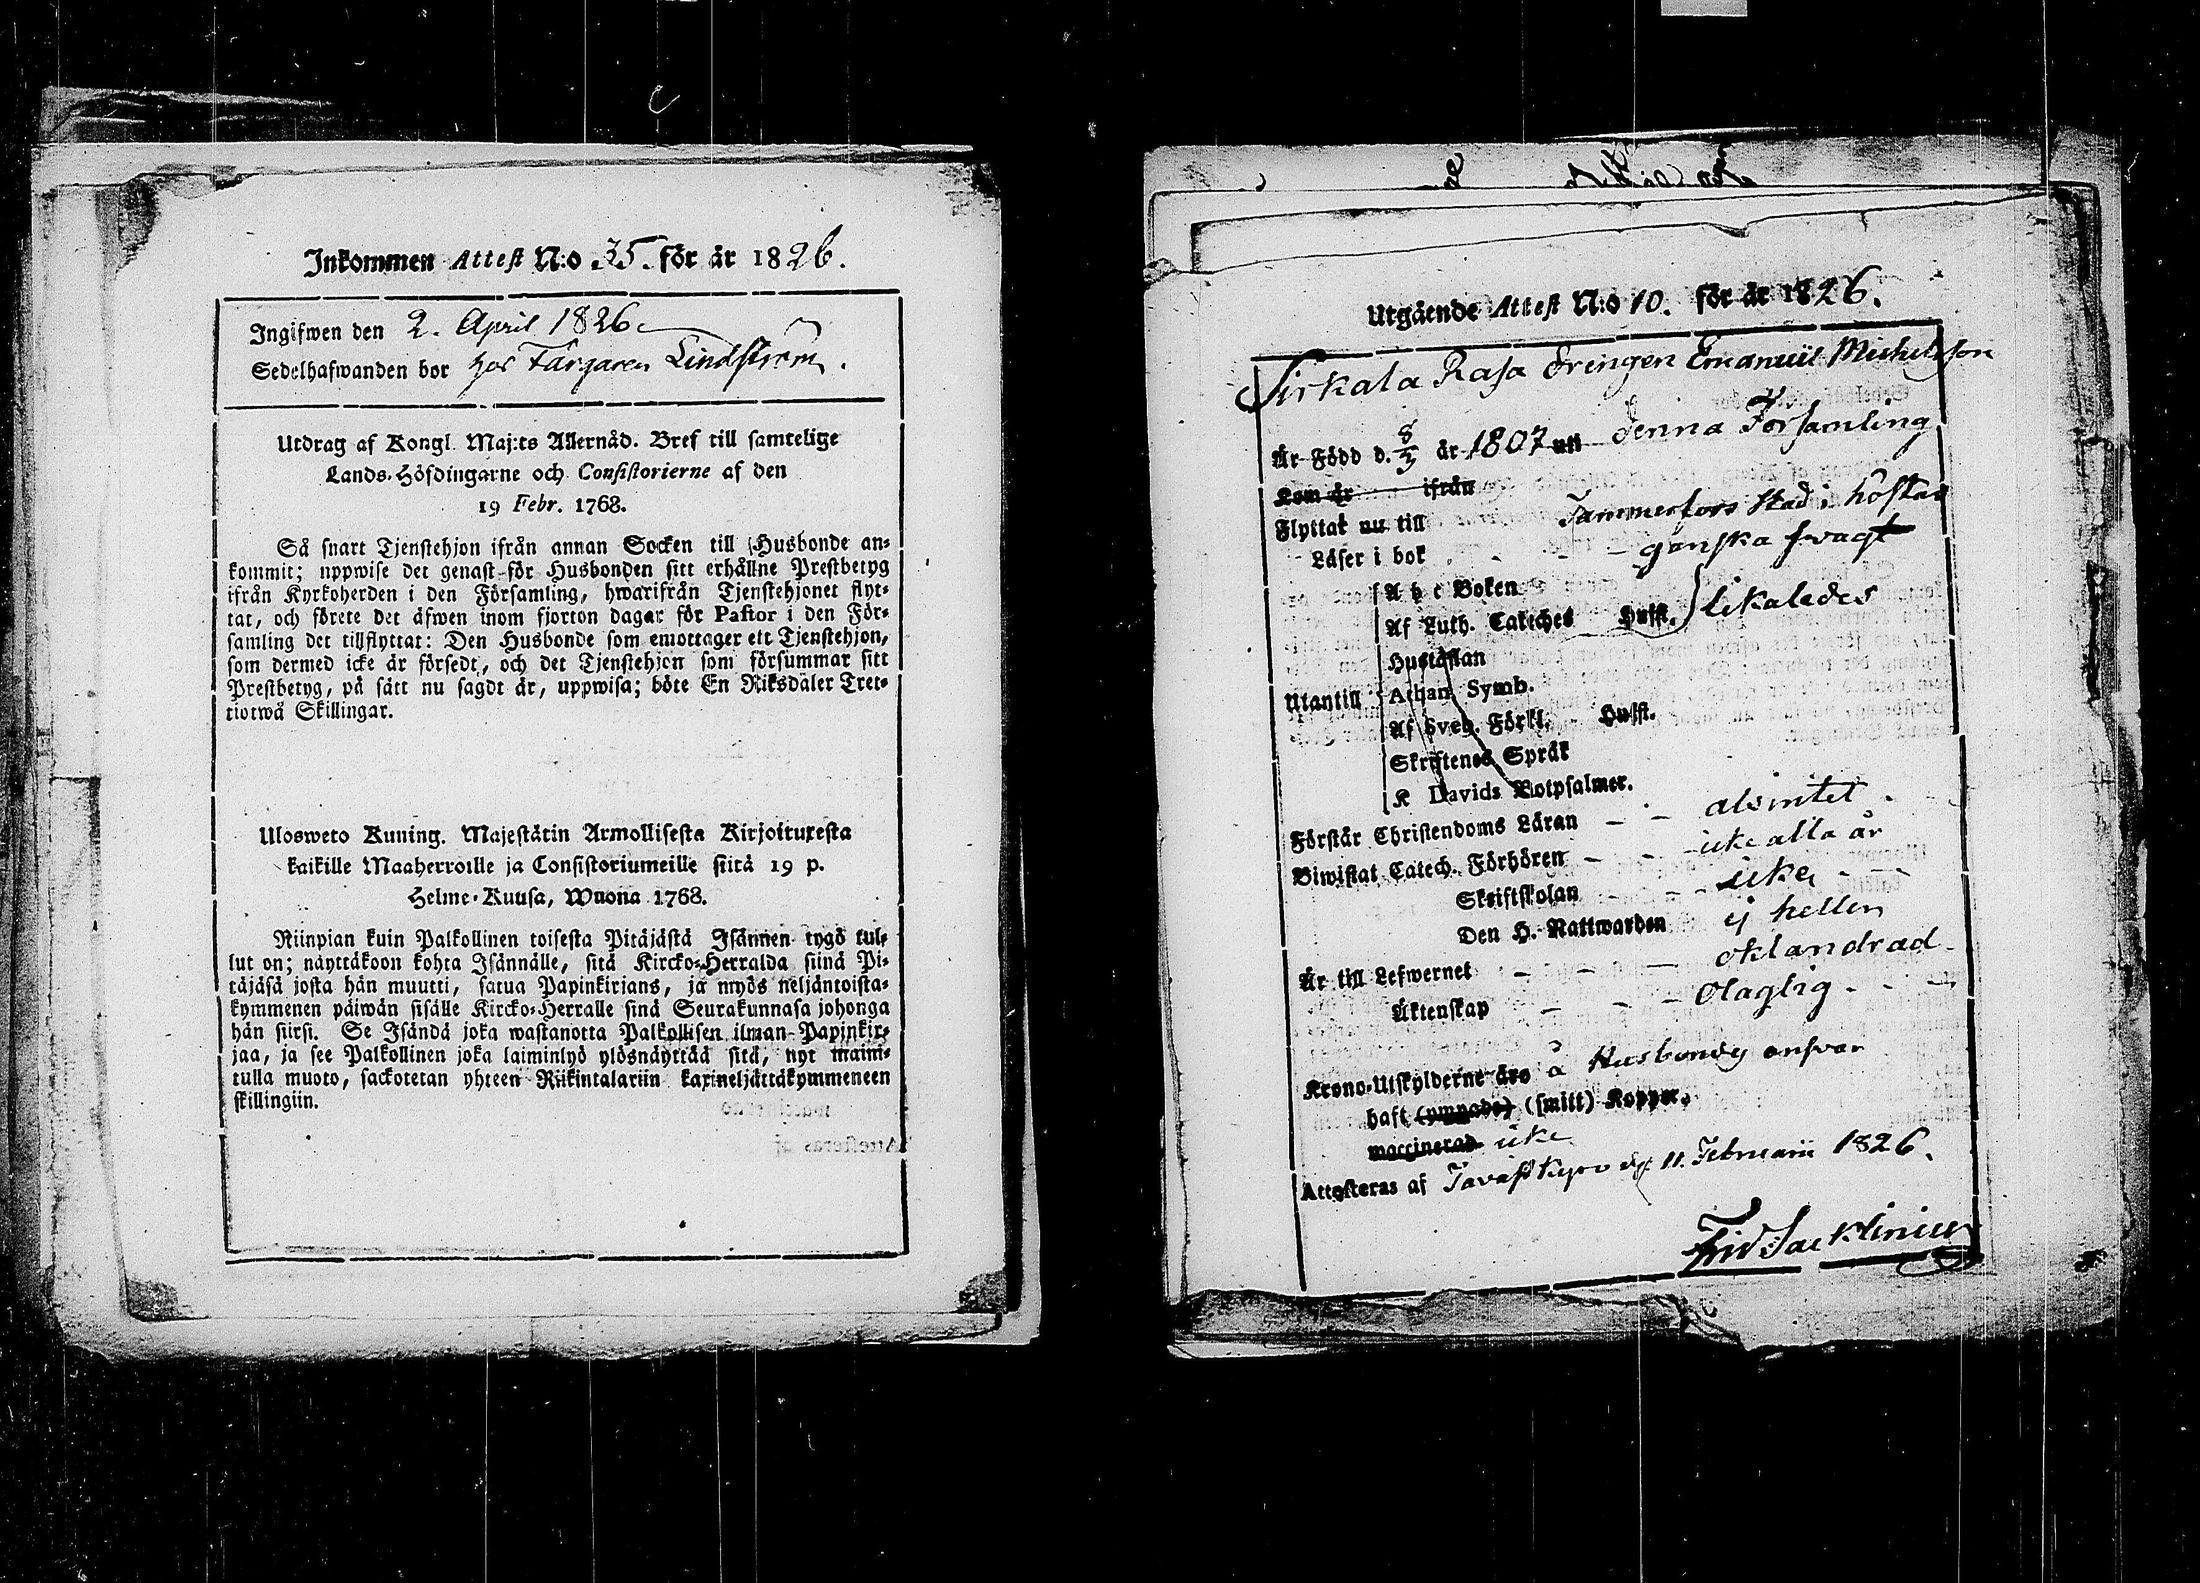 Inkommen Attest N:o 35. för år 1826.
Ingifwen den 2. April 1826
Sedelhafwanden bor hos Färgaren Lindström.
Utdrag af Kongl. Maj:ts Allernåd. Bref till samtelige
Lands-Höfdingarne och Consistorierne af den
19 Febr. 1768.
Så snart Tjenstehjon ifrån annan Socken till Husbonde an-
kommit; uppwise det genast för Husbonden sitt erhållne Prestbetyg
ifrån Kyrkoherden i den Församling, hwarifrån Tjenstehjonet flyt-
tat, och förete det äfwen inom fjorton dagar för Pastor i den För-
samling det tillflyttat: Den Husbonde som emottager ett Tjenstehjon,
som dermed icke är försedt, och det Tjenstehjon som försummar sitt
Prestbetyg, på sätt nu sagdt är, uppwisa; böte En Riksdaler Tret-
tiotwå Skillingar.
Ulosweto Kuning. Majestätin Armollisesta Kirjoituxesta
kaikille Maaherroille ja Consistoriumeille siitä 19 p.
Helme-Kuusa, Wuona 1768.
Niinpian kuin Palkollinen toisesta Pitäjästä Isännen tygö tul-
lut on; näyttäkoon kohta Isännälle, sitä Kircko-Herralda siinä Pi-
täjäsä josta hän muutti, satua Papinkirjans, ja myös neljäntoista-
kymmenen päiwän sisälle Kircko-Herralle sinä Seurakunnasa johonga
hän siirsi. Se Isändä joka wastanotta Palkollisen ilman Papinkir-
jaa, ja see Palkollinen joka laiminlyö ylösnäyttää sitä, nyt maini-
tulla muoto, sackotetan yhteen Riikintalariin kaxineljättäkymmeneen
skillingiin.
Utgående Attest N:o 10. för år 1826.
Sirkala Rasa drengen Emanuel Michelsson
Är Född d. 8/3 år 1807 uti denna Församling
Kom år ifrån
Flyttat nu till Tammerfors stad i höstas
Läser i bok - - - ganska swagt
Utantill
A b c Boken
Af Luth. Cateches Husst. likaledes
Hustaflan
Athan. Symb.
Af Sveb. Förkl. Husst.
Skriftenes Språk
K Davids Botpsalmer.
Förstår Christendoms Läran - - alsintet
Biwistat Catech. Förhören - - icke alla år
Skriftskolan - - icke
Den H. Nattwarden ej heller
Är till Lefwernet - - - oklandrad
Äktenskap - - - Olaglig
Krono-Utskylderne äro å Husbondes answar
haft (ympade) (smitt) Koppor,
waccinerad icke
Attesteras af Tavastkyro d. 11. Februarii 1826.